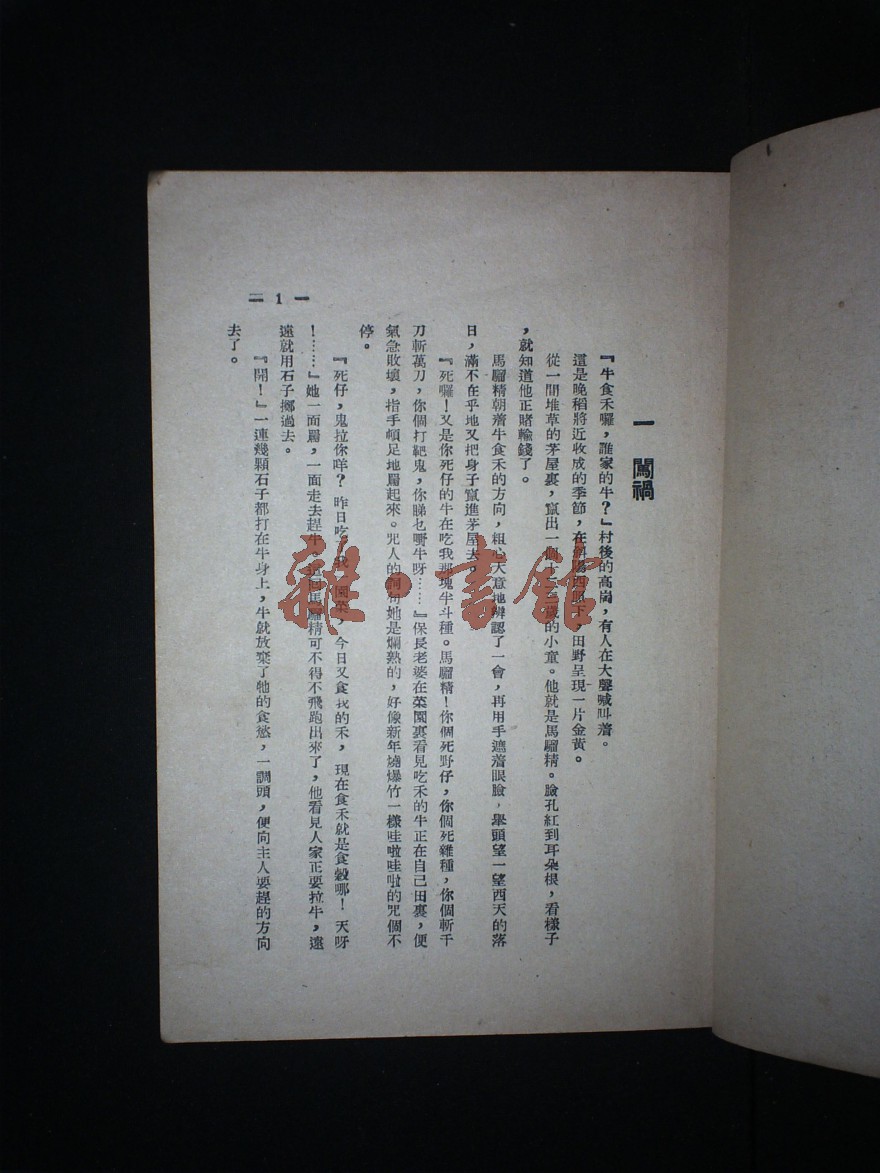 一 闖禍
『牛食禾囉，誰家的牛？』村後的高崗，有人在大聲喊叫着。
這是晚稻將近收成的季節，在斜陽西照下，田野呈現一片金黃。
從一間堆草的茅屋裏，竄出一個十二歲的小童。他就是馬騮精。臉孔紅到耳朵根，看樣子
，就知道他正賭輸錢了。
馬騮精朝着牛食禾的方向，粗心大意地辨認了一會，再用手遮着眼臉，舉頭望一望西天的落
日，滿不在乎地又把身子竄進茅屋去。
『死囉！又是你死仔的牛在吃我那塊半斗種。馬騮精！你個死野仔，你個死雜種，你個斬千
刀斬萬刀，你個打靶鬼，你睇乜嘢牛呀……』保長老婆在菜園裏看見吃禾的牛正在自己田裏，便
氣急敗壞，指手頓足地罵起來。咒人的詞句她是爛熟的，好像新年燒爆竹一樣哇啦哇啦的咒個不
停。
『死仔，鬼拉你咩？昨日吃我園菜，今日又食我的禾，現在食禾就是食穀哪！天呀
！……』她一面罵，一面走去趕牛。這回馬騮精可不得不飛跑出來了，他看見人家正要拉牛，遠
遠就用石子擲過去。
『開！』一連幾顆石子都打在牛身上，牛就放棄了牠的食慾，一調頭，便向主人要趕的方向
去了。
1
雜·書館